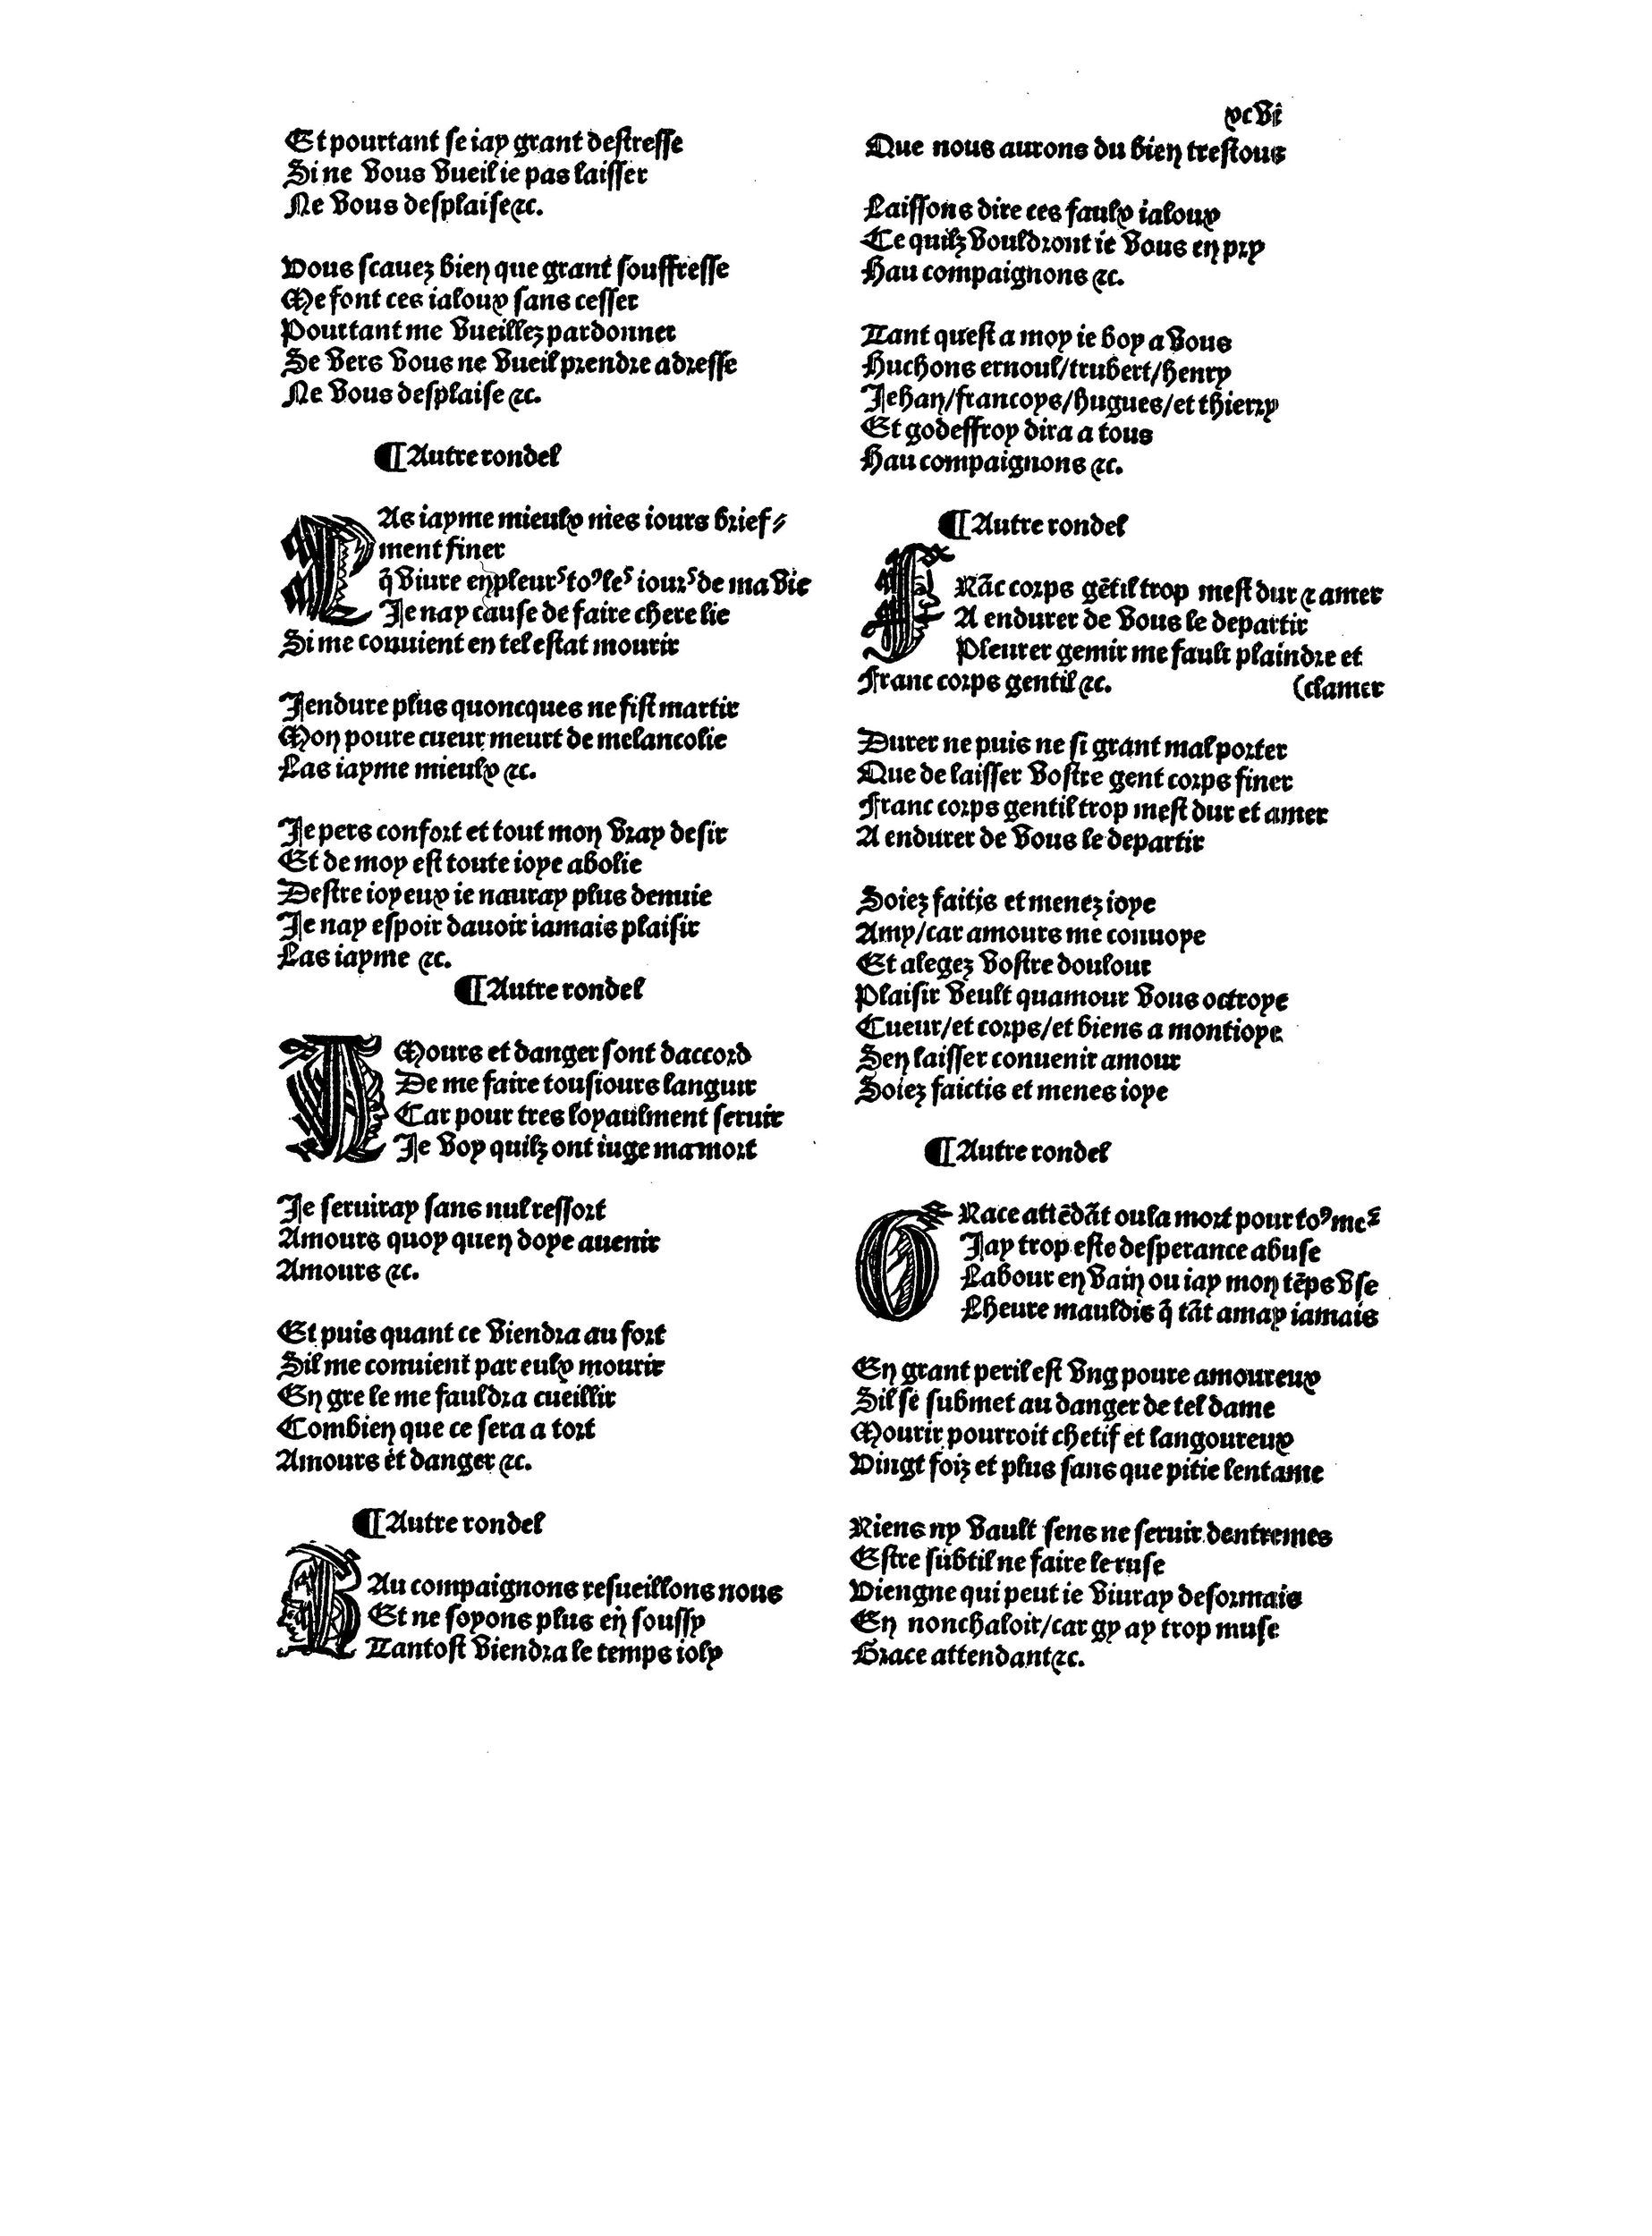 xcvi
Et pourtant se iay grant destresse
Si ne vous vueil ie pas laisser
Ne vous desplaise &c.
Vous scauez bien que grant souffresse
Me font ces ialoux sans cesser
Pourtant me vueillez pardonner
Se vers vous ne vueil prendre adresse
Ne vous desplaise &c.
¶ Autre rondel
LAs iayme mieulx mes iours brief⸗
ment finer
q̄ viure en pleurs toꝰ les iours de ma vie
Je nay cause de faire chere lie
Si me conuient en tel estat mourir
Jendure plus quoncques ne fist martir
Mon poure cueur meurt de melancolie
Las iayme mieulx &c.
Je pers confort et tout mon vray desir
Et de moy est toute ioye abolie
Destre ioyeux ie nauray plus denuie
Je nay espoir dauoir iamais plaisir
Las iayme &c.
¶ Autre rondel
AMours et danger sont daccord
De me faire tousiours languir
Car pour tres loyaulment seruir
Je voy quilz ont iuge ma mort
Je seruiray sans nul ressort
Amours quoy quen doye auenir
Amours &c.
Et puis quant ce viendra au fort
Sil me conuient par eulx mourir
En gre le me fauldra cueillir
Combien que ce sera a tort
Amours et danger &c.
¶ Autre rondel
HAu compaignons resueillons nous
Et ne soyons plus en soussy
Tantost viendra le temps ioly
Que nous aurons du bien trestous
Laissons dire ces faulx ialoux
Ce quilz vouldront ie vous en pry
Hau compaignons &c.
Tant quest a moy ie boy a vous
Huchons ernoul/trubert/henry
Jehan/francoys/hugues/et thierry
Et godeffroy dira a tous
Hau compaignons &c.
¶ Autre rondel
FRāc corps gētil trop mest dur & amer
A endurer de vous le departir
Pleurer gemir me fault plaindre et
(clamer
Franc corps gentil &c.
Durer ne puis ne si grant mal porter
Que de laisser vostre gent corps finer
Franc corps gentil trop mest dur et amer
A endurer de vous le departir
Soiez faitis et menez ioye
Amy/car amours me conuoye
Et alegez vostre doulour
Plaisir veult quamour vous octroye
Cueur/et corps/et biens a montioye
Sen laisser conuenir amour
Soiez faictis et menes ioye
¶ Autre rondel
GRace attēdāt ou la mort pour toꝰ mes
Jay trop este desperance abuse
Labour en vain ou iay mon tēps vse
Lheure mauldis q̄ tāt amay iamais
En grant peril est vng poure amoureux
Sil se submet au danger de tel dame
Mourir pourroit chetif et langoureux
Vingt foiz et plus sans que pitie lentame
Riens ny vault sens ne seruir dentremes
Estre subtil ne faire le ruse
Viengne qui peut ie viuray desormais
En nonchaloir/car gy ay trop muse
Grace attendant &c.